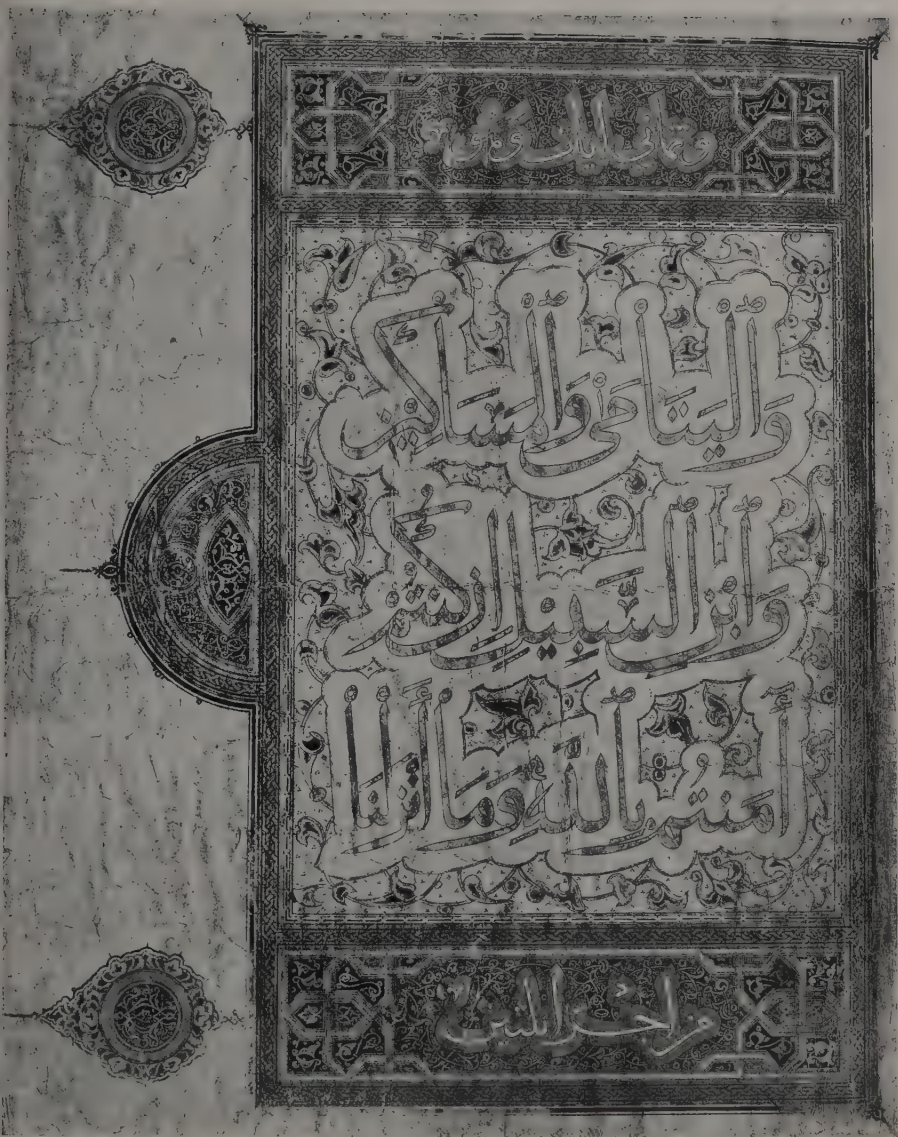 وثماني ايات وهو
وَالْيَتَامَىٰ وَالْمَسَاكِينِ
وَابْنِ السَّبِيلِ إِن كُنتُمْ
أَمَنتُم بِاللَّهِ وَمَا أَنزَلْنَا
من اجزا ثلثين